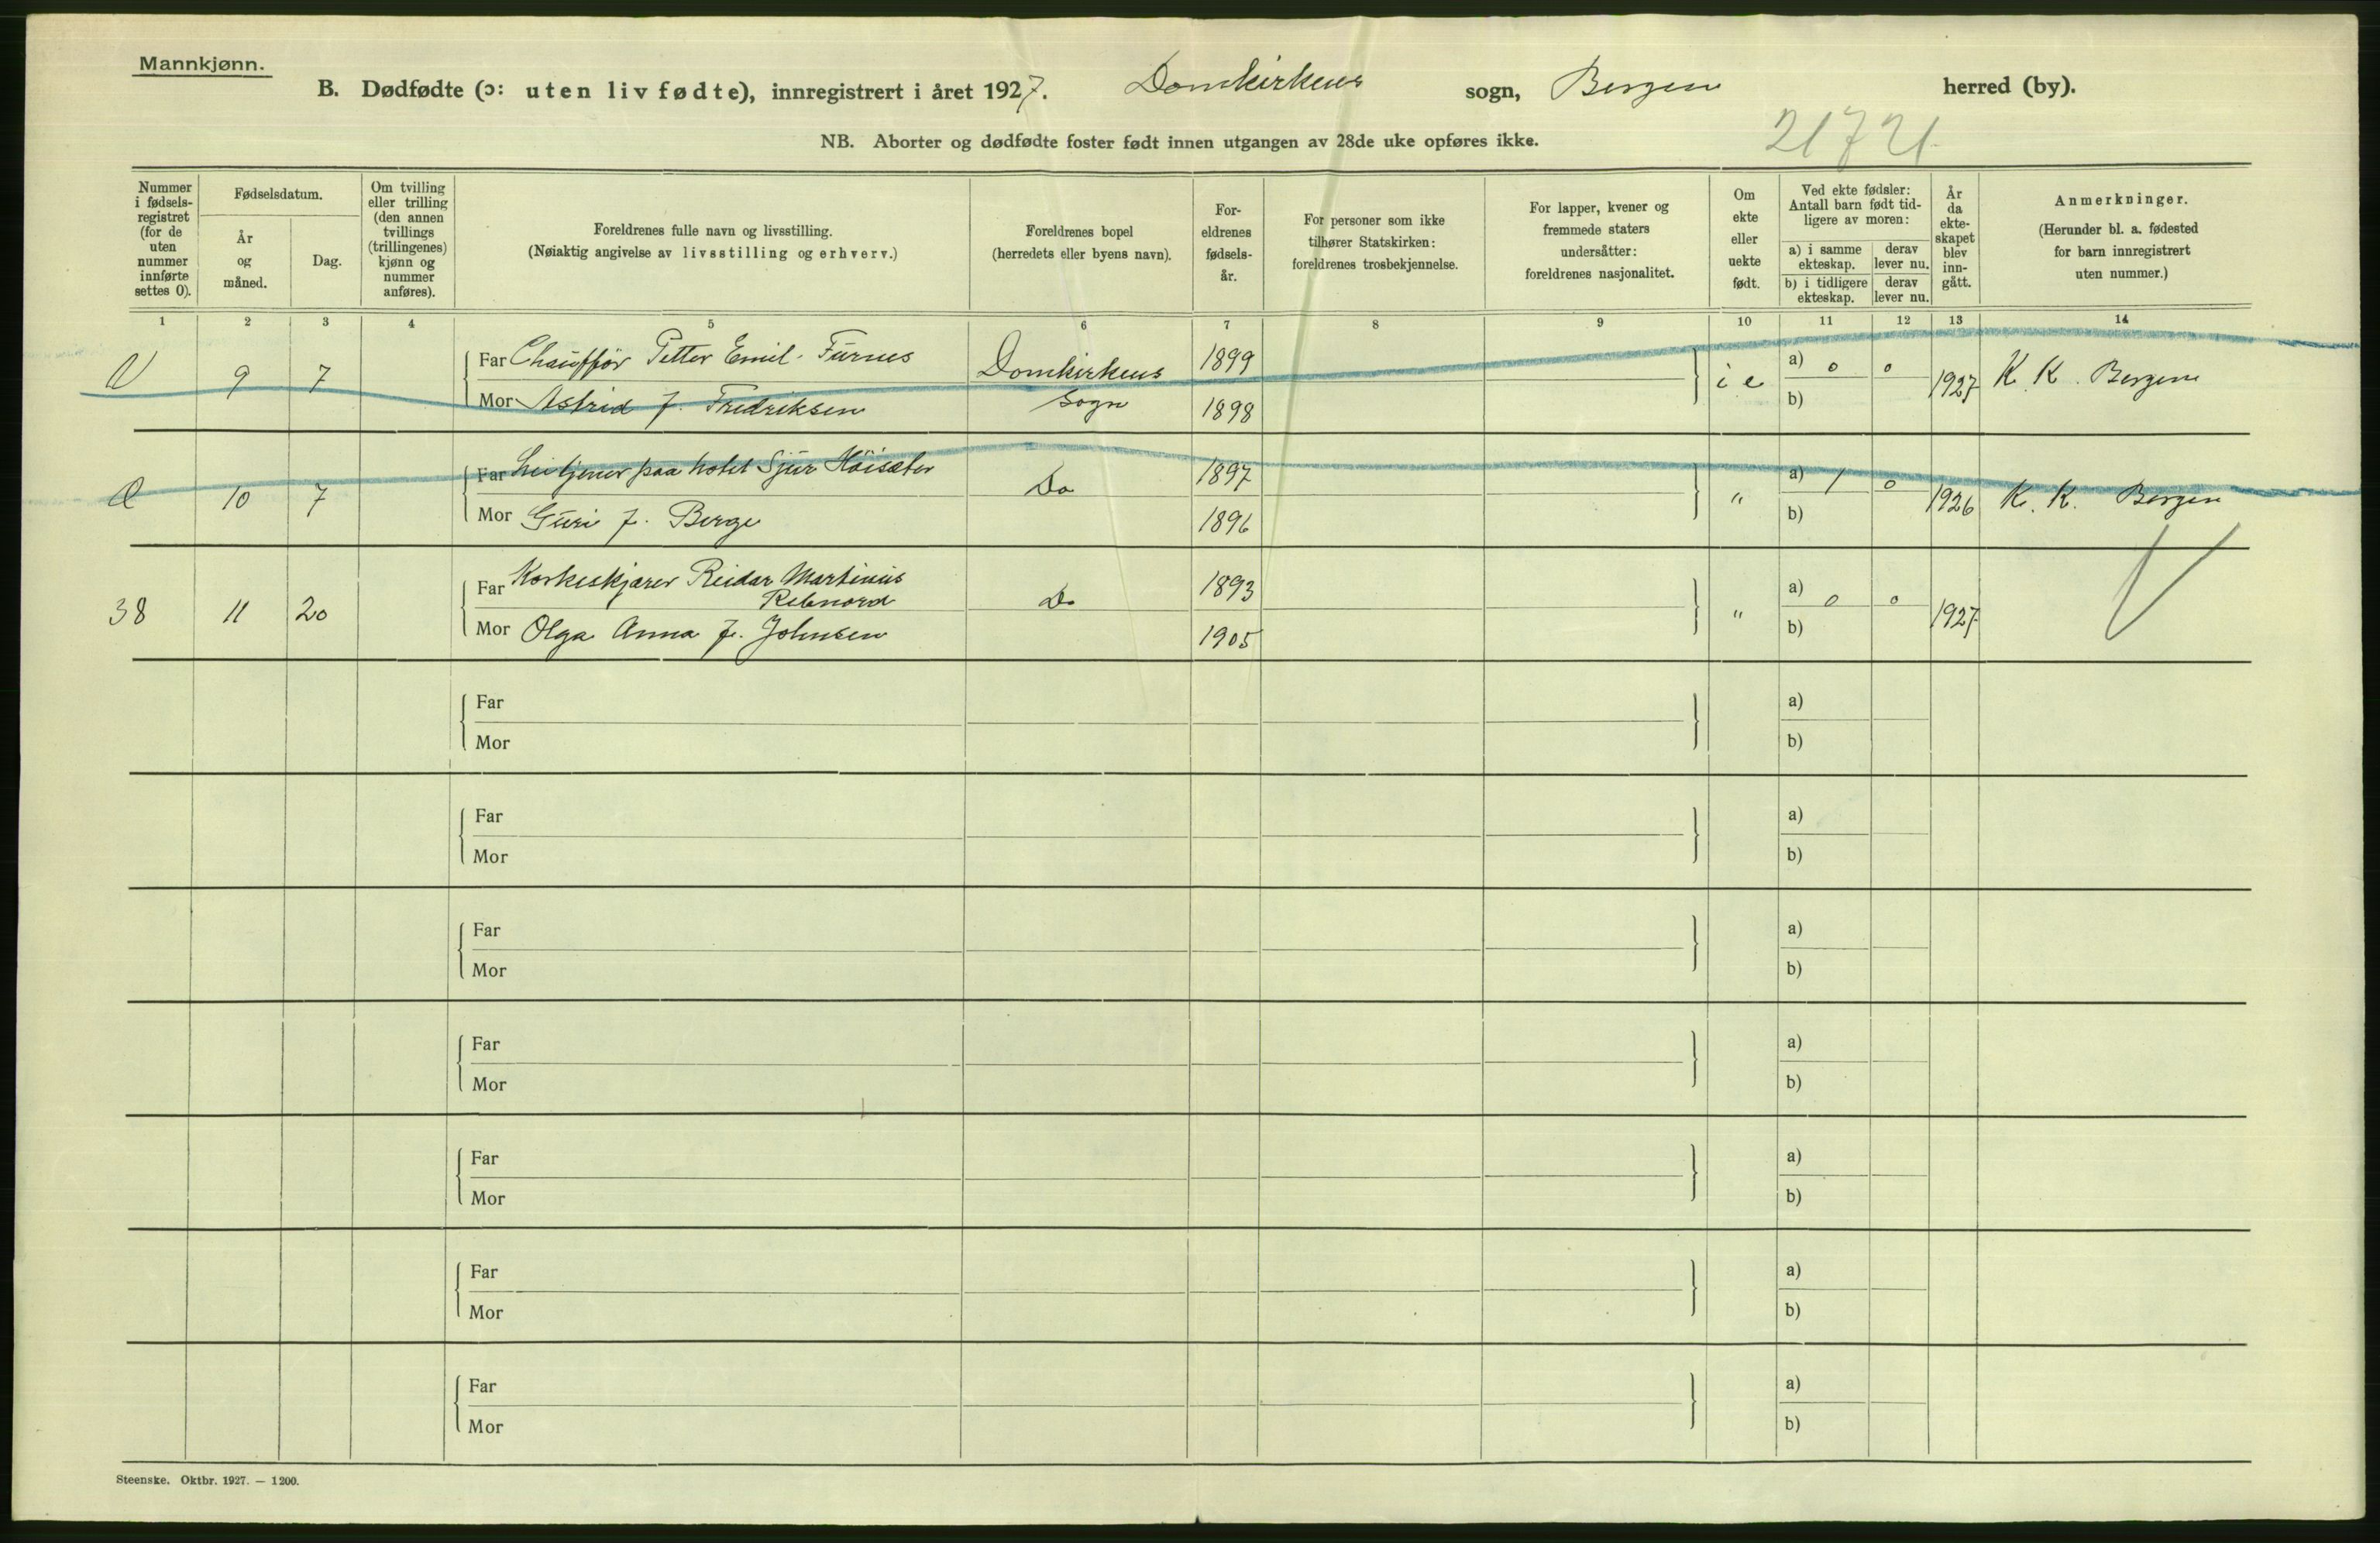 Mannkjønn.
B. Dødfødte (ɔ: uten liv fødte), innregistrert i året 1927. Domkirkens sogn, Bergen herred (by).
NB. Aborter og dødfødte foster født innen utgangen av 28de uke opføres ikke.
21721
Nummer i fødselsregistret (for de uten nummer innførte settes 0).
Fødselsdatum.
År og måned.
Dag.
Om tvilling eller trilling (den annen tvillings (trillingenes) kjønn og nummer anføres).
Foreldrenes fulle navn og livsstilling.
(Nøiaktig angivelse av livsstilling og erhverv.)
Foreldrenes bopel
(herredets eller byens navn).
For-
eldrenes
fødsels-
år.
For personer som ikke
tilhører Statskirken:
foreldrenes trosbekjennelse.
For lapper, kvener og
fremmede staters
undersåtter:
foreldrenes nasjonalitet.
Om
ekte
eller
uekte
født.
Ved ekte fødsler:
Antall barn født tid-
ligere av moren:
a) i samme ekteskap. derav lever nu.
b) i tidligere ekteskap. derav lever nu.
År
da
ekte-
skapet
blev
inn-
gått.
Anmerkninger.
(Herunder bl. a. fødested
for barn innregistrert
uten nummer.)
1 2 3 4 5 6 7 8 9 10 11 12 13 14
9 7 Far Chauffør Petter Emil Furnes Domkirkens 1899 i e a) 0 0 1927 K. K. Bergen
Mor Astrid f. Fredriksen Sogn 1898 b)
10 7 Far tjener paa hotel Sjur Høisæter Do 1897 " a) 1 0 1926 K. K. Bergen
Mor Guri f. Berge 1896 b)
38 11 20 Far Korkeskjærer Reidar Martinius
Rebnord Do 1893 " a) 0 0 1927
Mor Olga Anna f. Johnsen 1905 b)
Far a)
Mor b)
Far a)
Mor b)
Far a)
Mor b)
Far a)
Mor b)
Far a)
Mor b)
Far a)
Mor b)
Far a)
Mor b)
Steenske. Oktbr. 1927. — 1200.